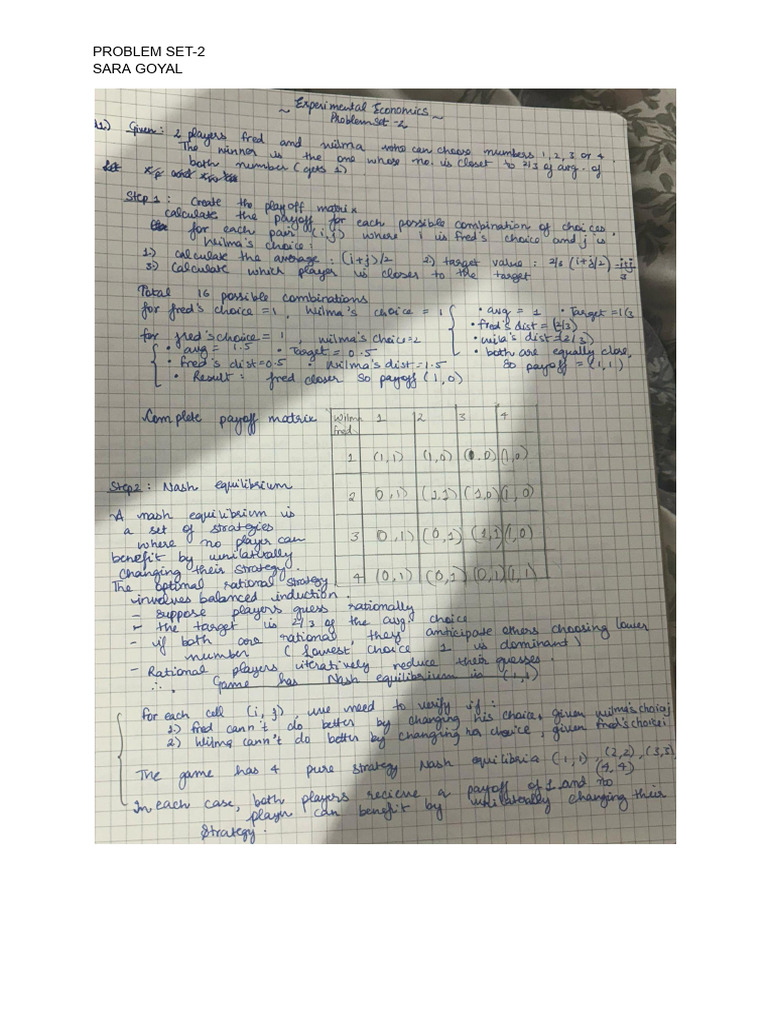 PROBLEM SET-2
SARA GOYAL
~ Experimental Economics ~
Problem Set -2
Given: 2 players fred and wilma who can choose numbers 1, 2, 3 or 4.
The winner is the one whose no. is closet to 2/3 of avg. of
both number (gets 1)
Step 1: Create the playoff matrix
calculate the payoff for each possible combination of choices,
for each pair (i, j) where i is fred's choice and j is
Wilma's choice:
1.) calculate the average : (i+j)/2 2) target value : 2/3 (i+j/2) = i+j/3
3) Calculate which player is closer to the target
Total 16 possible combinations
for fred's choice = 1, Wilma's choice = 1
• avg = 1 • Target = 1(3
• fred's dist = (2/3)
• dist = (2/3)
• both are equally close,
so payoff = (1,1)
for fred's choice = 1, wilma's choice=2
• avg = 1.5 • Target = 0.5
• fred's dist=0.5 • Wilma's dist=1.5
• Result: fred closer so payoff (1,0)
Complete payoff matrix
Wilma 1 2 3 4
fred
1 (1,1) (1,0) (1,0) (1,0)
2 (0,1) (1,1) (1,0) (1,0)
3 (0,1) (0,1) (1,1) (1,0)
4 (0,1) (0,1) (0,1) (1,1)
Step2: Nash equilibrium
A nash equilibrium is
a set of strategies
where no player can
benefit by unilaturally
changing their strategy.
The optimal rational strategy
involves balanced induction.
- suppose players guess rationally
- the target is 2/3 of the avg. choice
- if both are rational, they anticipate others choosing lower
number (lowest choice 1 is dominant)
- Rational players iteratively reduce their guesses.
∴ Game has Nash equilibrium is (1,1)
for each cell (i, j), we need to verify if :
1) fred cann't do better by changing his choice, given wilma's choice j
2) Wilma cann't do better by changing her choice, given fred's choice i
The game has 4 pure strategy Nash equilibria (1,1), (2,2), (3,3)
(4,4)
In each case, both players recieve a payoff of 1 and no
player can benefit by unilaterally changing their
strategy.